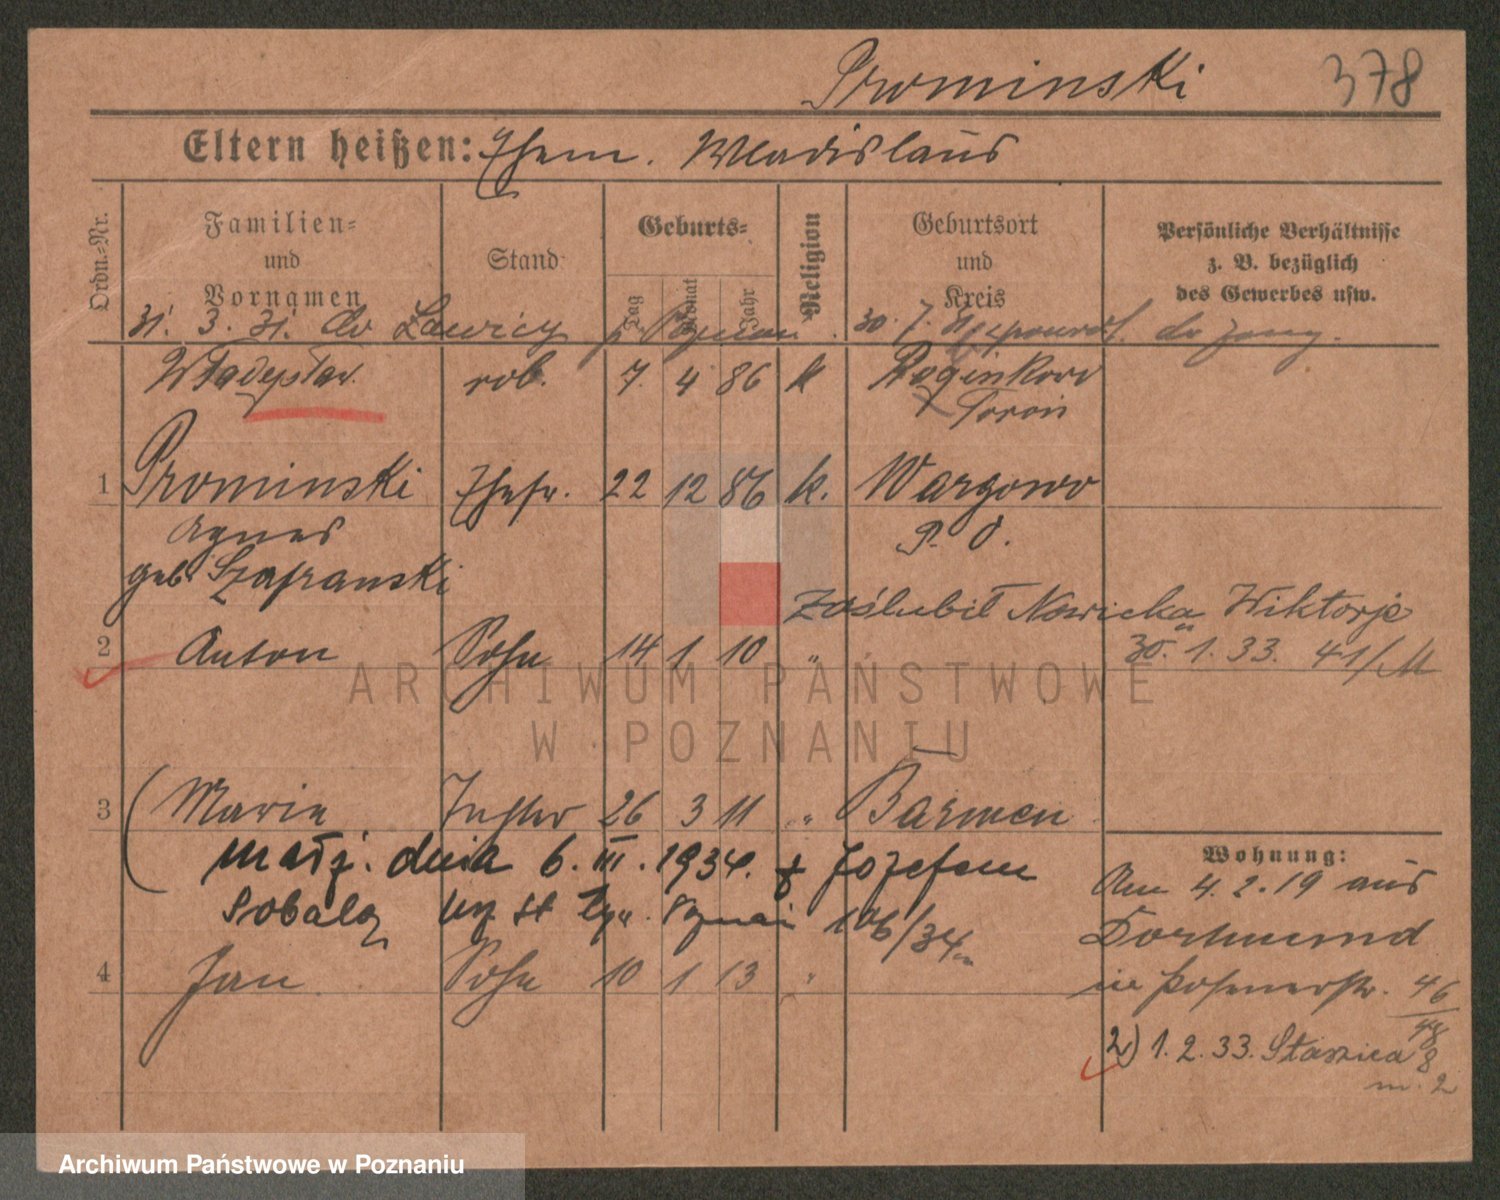 Prominski 378
Eltern heißen: Ehem. Wladislaus
Ordn.-Nr.
Familien= und Vornamen
Stand
Geburts=
Tag
Monat
Jahr
Religion
Geburtsort und Kreis
Persönliche Verhältnisse
z. B. bezüglich
des Gewerbes usw.
31. 3. 31. do Ławicy p. Poznan. 30. 7. 31 powrót. do żony.
Władysław. rob. 7. 4 86 k
Toroń
1 Prominski Ehefr. 22 12 86 k. Wargowo
Agnes P. O.
geb. Szafranski
Zaślubił Nowicka Wiktorję
2 Anton Sohn 14 1 10 " 30. 1. 33. 41/M
ARCHIWUM PAŃSTWOWE
W POZNANIU
3 Marie Tochter 26 3 11 " Barmen
małż. dnia 6. III. 1934. z Józefem
Sobala Urz. St. Cyw. Poznań 106/34
4 Jan Sohn 10 1 13 "
Wohnung:
Am 4. 2. 19 aus
Dortmund
in Posenerstr. 46/48
2) 1. 2. 33. Staszica 8
m. 2
Archiwum Państwowe w Poznaniu